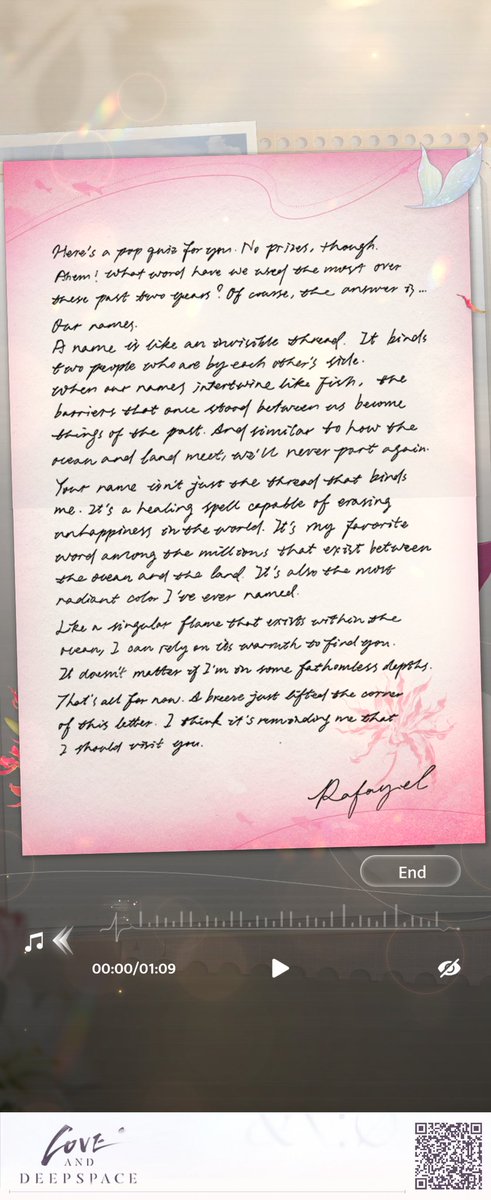 Here's a pop quiz for you. No prizes, though.
Ahem! What word have we used the most over
these past two years? Of course, the answer is...
Our names.
A name is like an invisible thread. It binds
two people who are by each other's side.
When our names intertwine like fish, the
barriers that once stood between us become
things of the past. And similar to how the
ocean and land meet, we'll never part again.
Your name isn't just the thread that binds
me. It's a healing spell capable of erasing
unhappiness in the world. It's my favorite
word among the millions that exist between
the ocean and the land. It's also the most
radiant color I've ever named.
Like a singular flame that exists within the
ocean, I can rely on its warmth to find you.
It doesn't matter if I'm in some fathomless depths.
That's all for now. A breeze just lifted the corner
of this letter. I think it's reminding me that
I should visit you.
Rafayel
End
00:00/01:09
LOVE
AND
DEEPSPACE